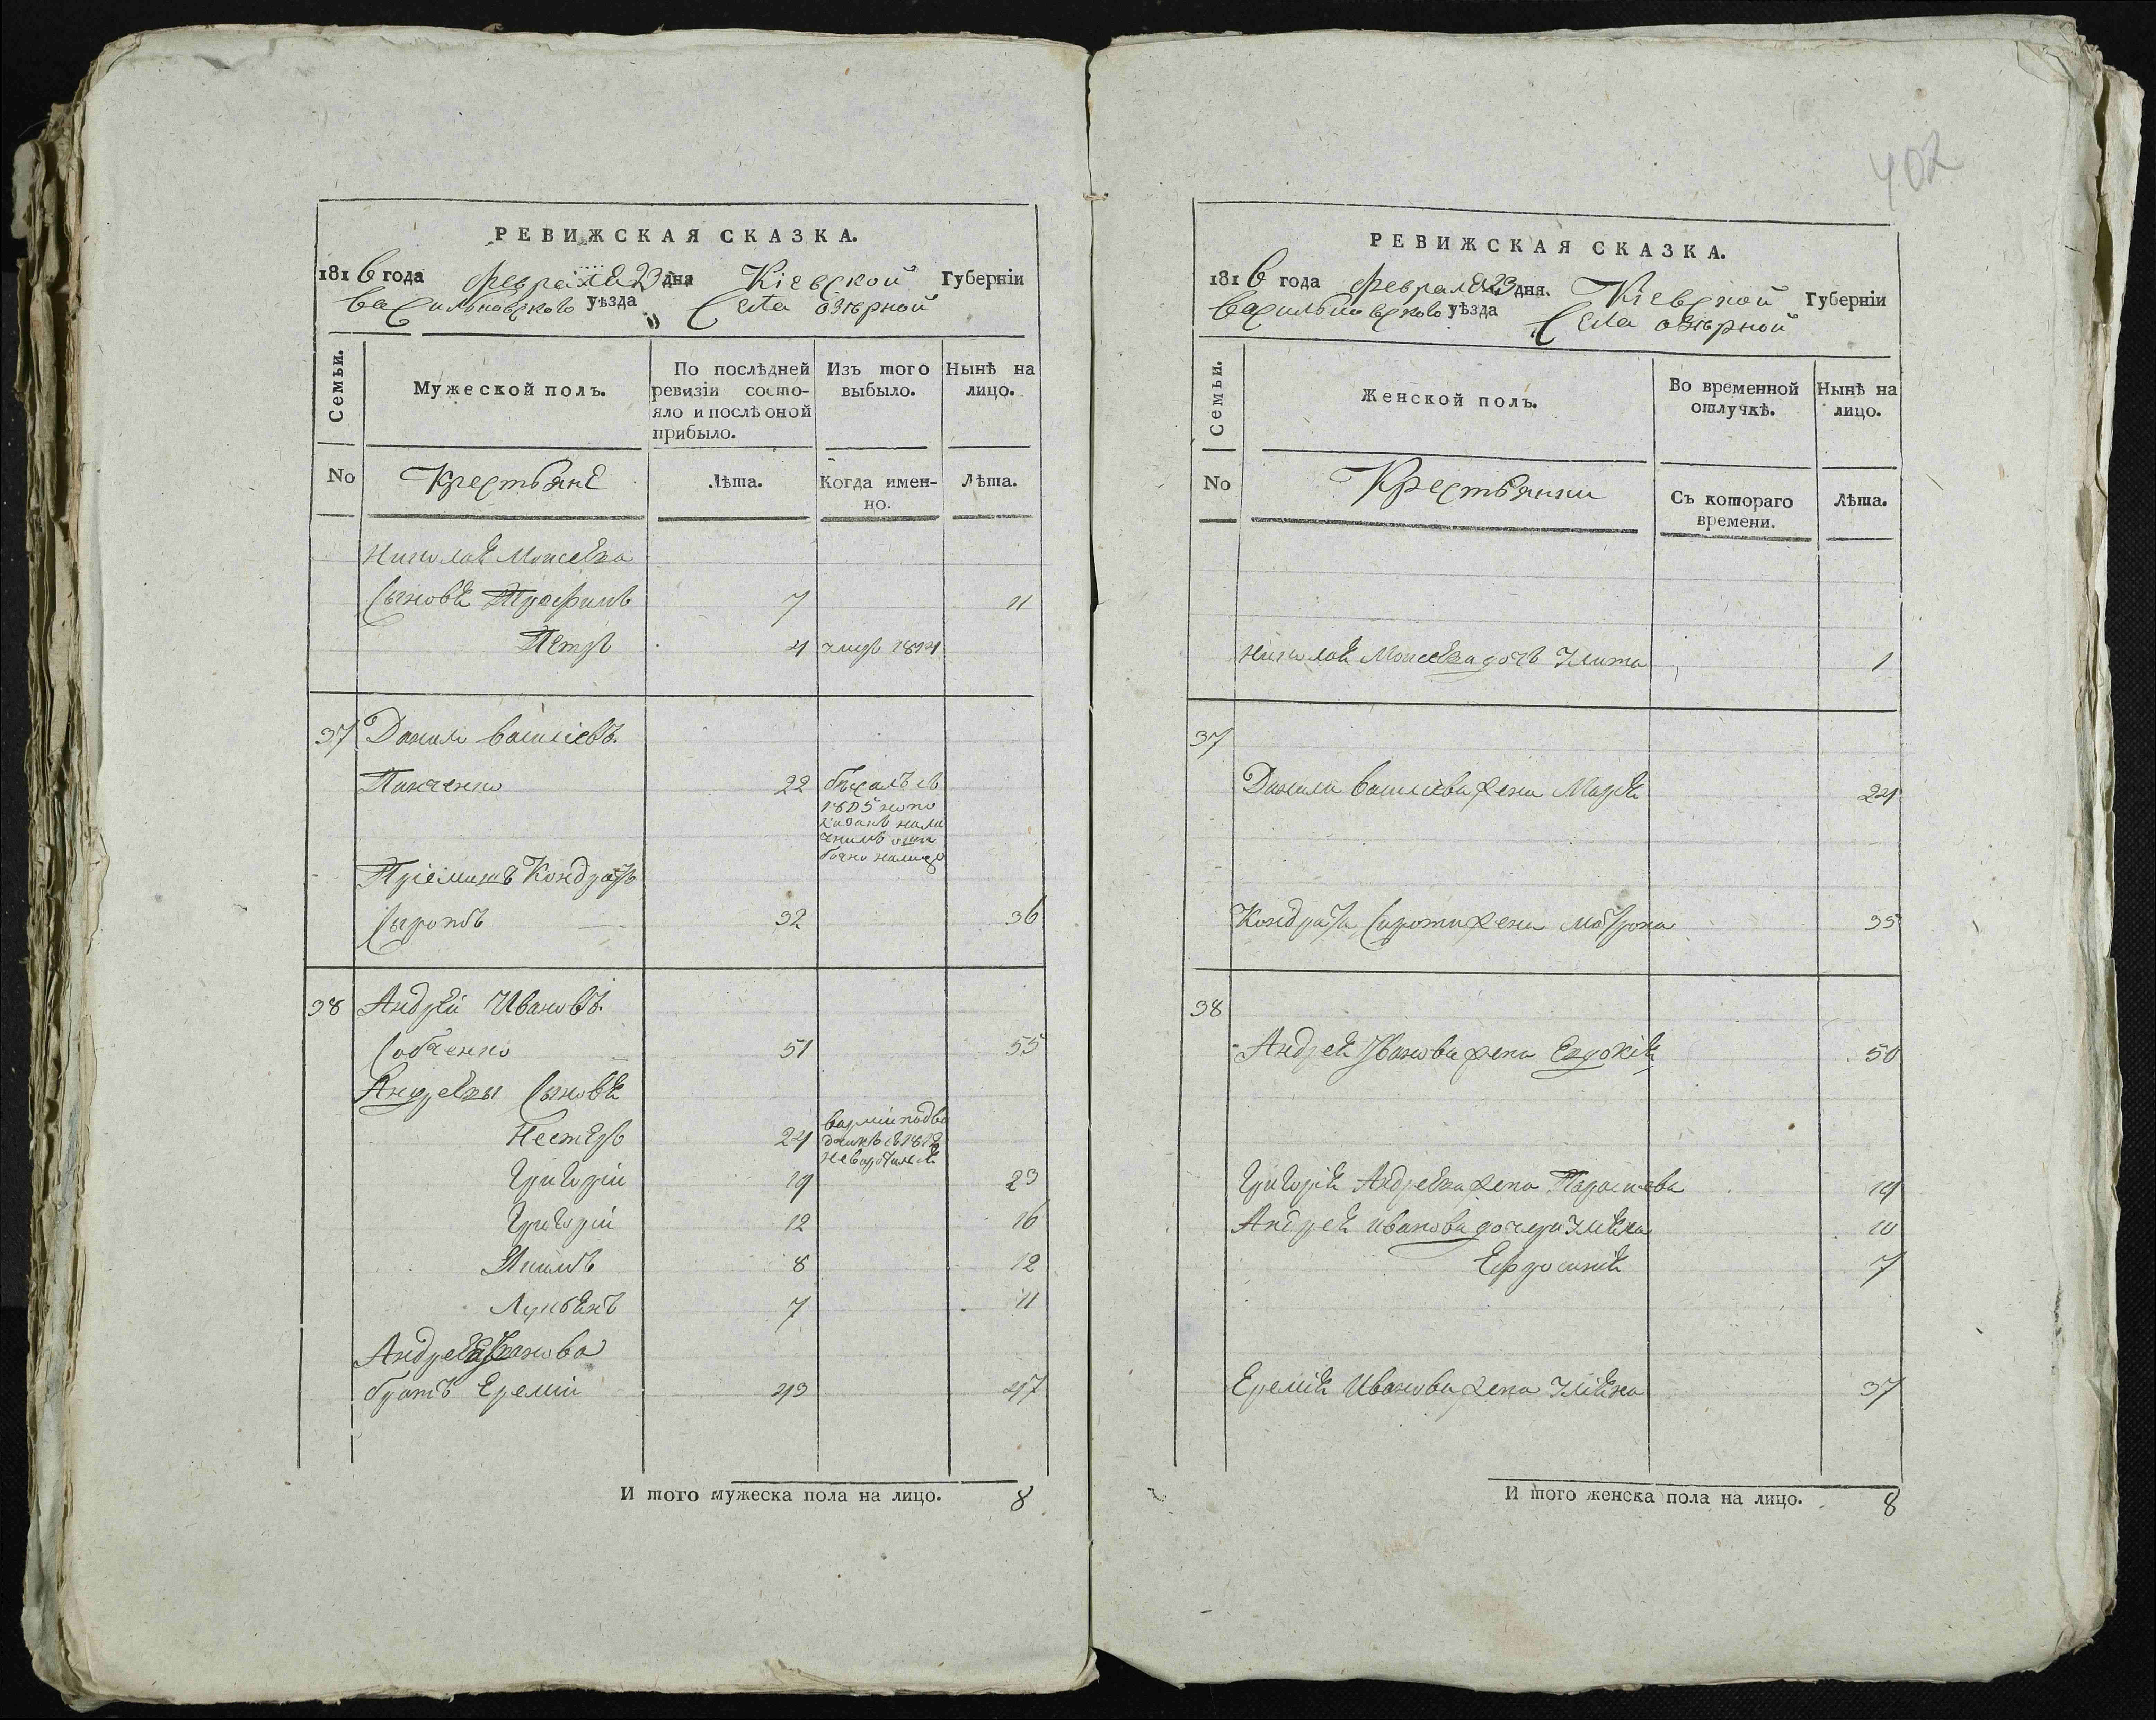 РЕВИЖСКАЯ СКАЗКА.
1816 года февраля 23 дня Кіевской Губерніи
Васильковского уѣзда Села Озѣрной
Семьи.
Мужеской полъ.
По послѣдней ревизіи состо-
яло и послѣ оной
прибыло.
Изъ того
выбыло.
Нынѣ на
лицо.
No
Крестьяне
Лѣта.
Когда имен-
но.
Лѣта.
Николая Моисеева
Сыновя Трофимъ 7 11
Петръ 4 умеръ 1814
37 Данило Василіевъ
Панченко 22
1805
Пріемышъ Кондратъ
Сырота 32 36
38 Андрей Ивановъ
Собченко 51 55
Андреевы Сыновя
Нестеръ 24
Григорій 19 23
Григорій 12 16
Якимъ 8 12
Лукьянъ 7 11
Андрея Иванова
братъ Еремій 43 47
И того мужеска пола на лицо. 8
402
РЕВИЖСКАЯ СКАЗКА.
1816 года февраля 23 дня. Кіевской Губерніи
Васильковского уѣзда Села Озѣрной
Семьи.
Женской полъ.
Во временной
отлучкѣ.
Нынѣ на
лицо.
No
Крестьянки
Съ котораго
времени.
Лѣта.
Николая Моисеева дочь 1
37
Данила Василіева жена Марія 24
Кондрата Сироти жена Мотрона 35
38
Андрея Иванова жена Евдокія 50
Григорія Андреева жена Параскева 19
Андрея Иванова дочери Уляна 10
Ефросинія 7
Еремія Иванова жена Уліяна 37
И того женска пола на лицо. 8